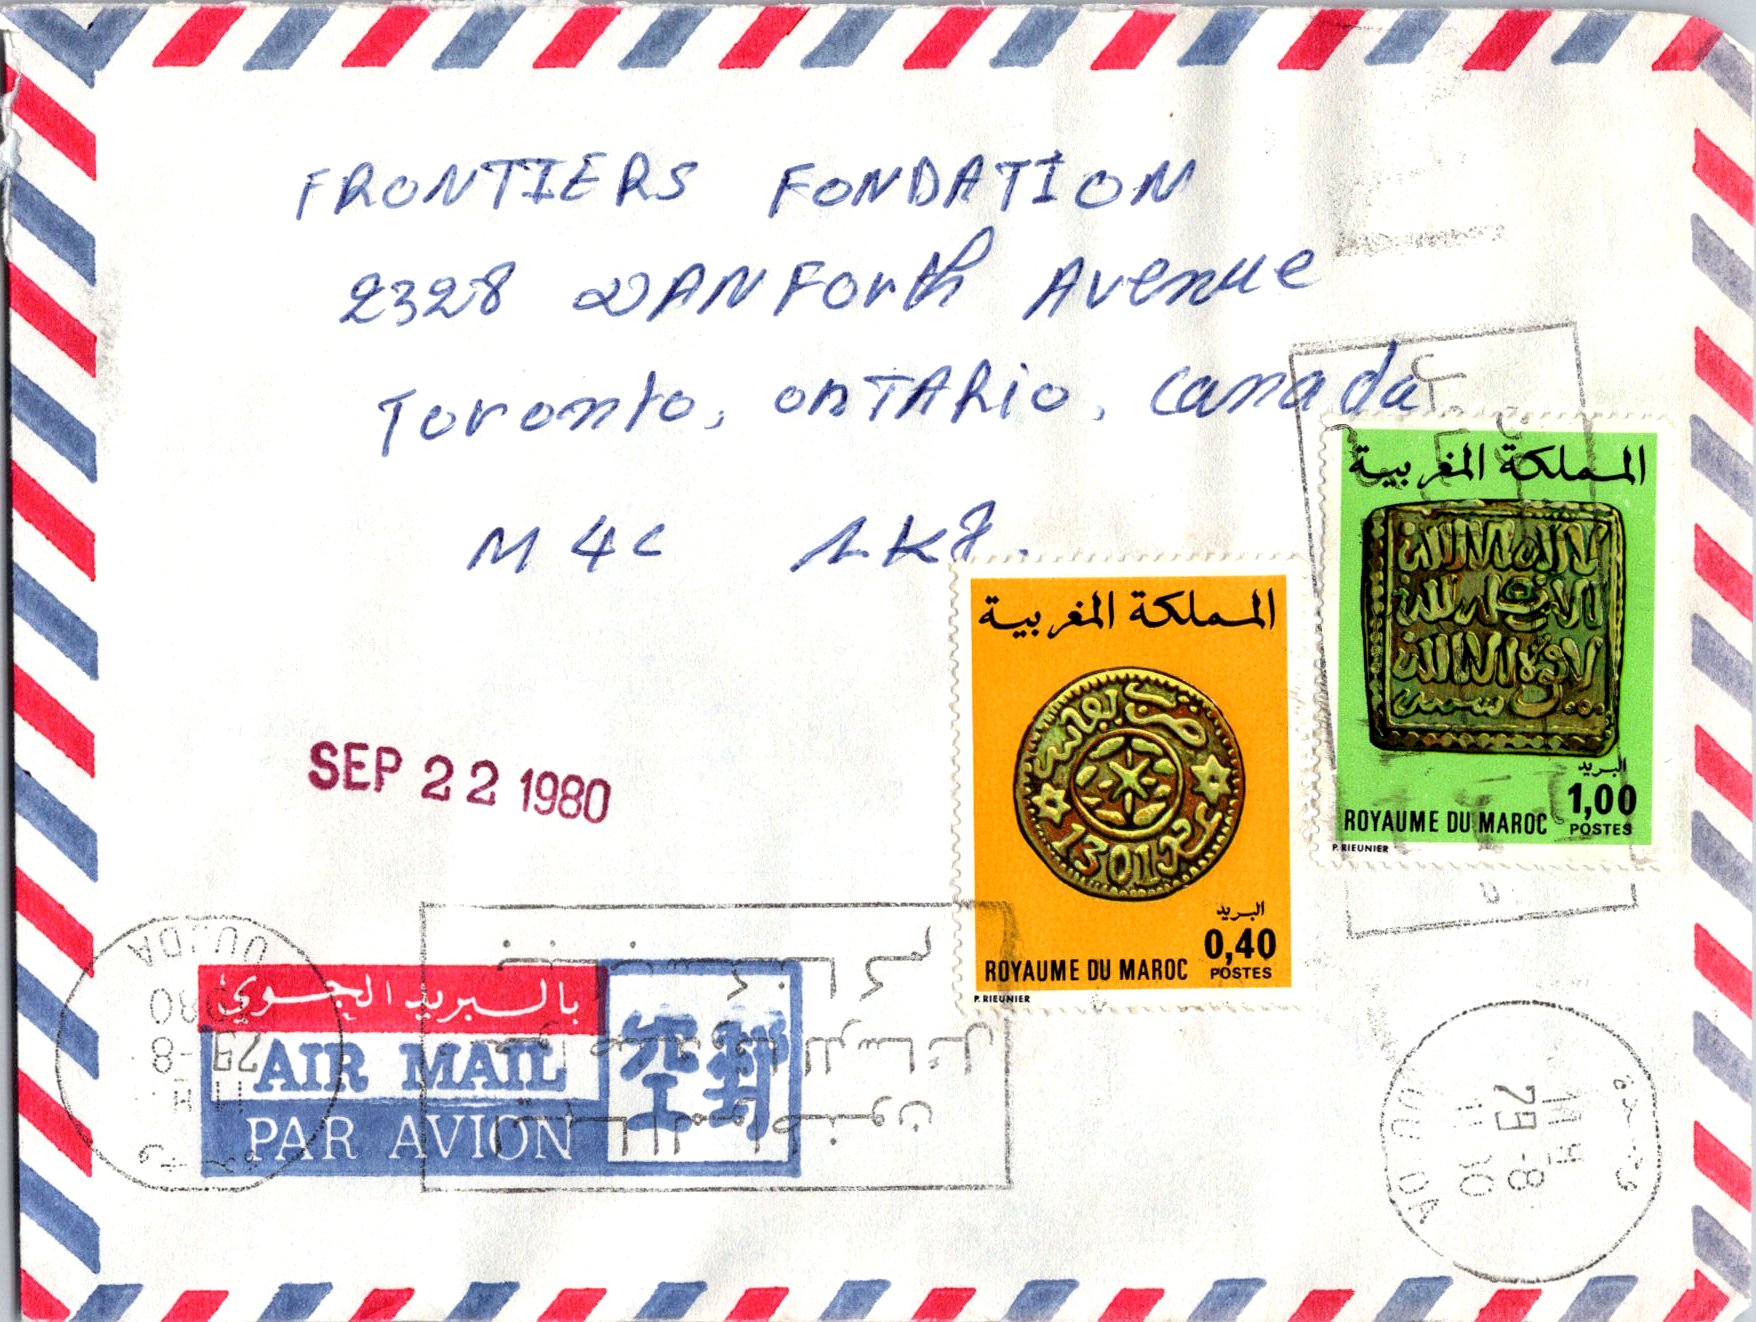 FRONTIERS FONDATION
2328 DANFORth Avenue
Toronto, ONTARio, Canada
M4C 1K7.
المملكة المغربية
البريد
1,00
ROYAUME DU MAROC POSTES
P. RIEUNIER
المملكة المغربية
1301
البريد
0,40
ROYAUME DU MAROC POSTES
P. RIEUNIER
SEP 22 1980
OUJDA
29-8
بالبريد الجوي
AIR MAIL
PAR AVION
OUJDA
29-8